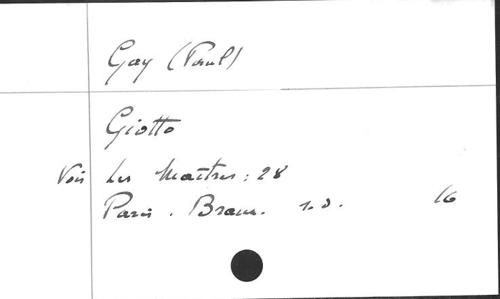 Gay (Paul)
Giotto
Voir Les Maitres : 28
Paris . Braun . s.d. 16